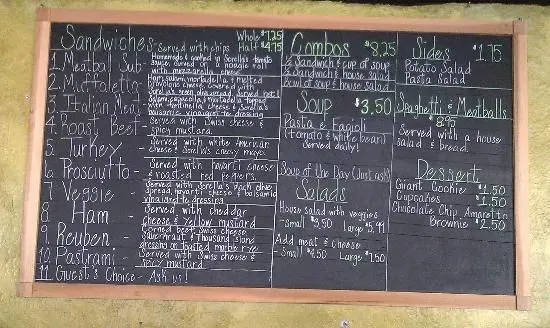 Sandwiches - Served with chips
Whole $7.25
Half $4.75
1. Meatball Sub - Homemade & cooked in Sorella's tomato
sauce, served on a hoagie roll
with mozzarella cheese
2. Muffoletta - Ham, salami, mortadella & melted
provolone cheese, covered with
Sorella's green olive spread. Served hot!
3. Italian Meat - Salami, capocolla, & mortadella topped
with fontinella cheese & Sorella's
balsamic vinaigrette dressing
4. Roast Beef - Served with Swiss cheese &
spicy mustard
5. Turkey - Served with white American
cheese & Sorella's chipotle mayo
6. Prosciutto - Served with havarti cheese
& roasted red peppers.
7. Veggie - Served with Sorella's black olive
spread, havarti cheese & balsamic
vinaigrette dressing
8. Ham - Served with cheddar
cheese & yellow mustard
9. Reuben - Corned beef, Swiss cheese
sauerkraut & Thousand Island
dressing on toasted marble rye
10. Pastrami - Served with Swiss cheese &
spicy mustard
11. Guest's Choice - Ask us!
Combos $8.25
½ Sandwich & cup of soup
½ Sandwich & house salad
bowl of soup & house salad
Soup $3.50
Pasta & Fagioli
(tomato & white bean)
Served daily!
Soup of the Day (Just ask!)
Salads
House salad with veggies
- Small $3.50 Large $5.99
Add meat & cheese
- Small $2.50 Large $7.50
Sides $1.75
Potato Salad
Pasta Salad
Spaghetti & Meatballs
$8.95
Served with a house
salad & bread.
Dessert
Giant Cookie $1.50
Cupcakes $1.50
Chocolate Chip Amaretto
Brownie $2.50